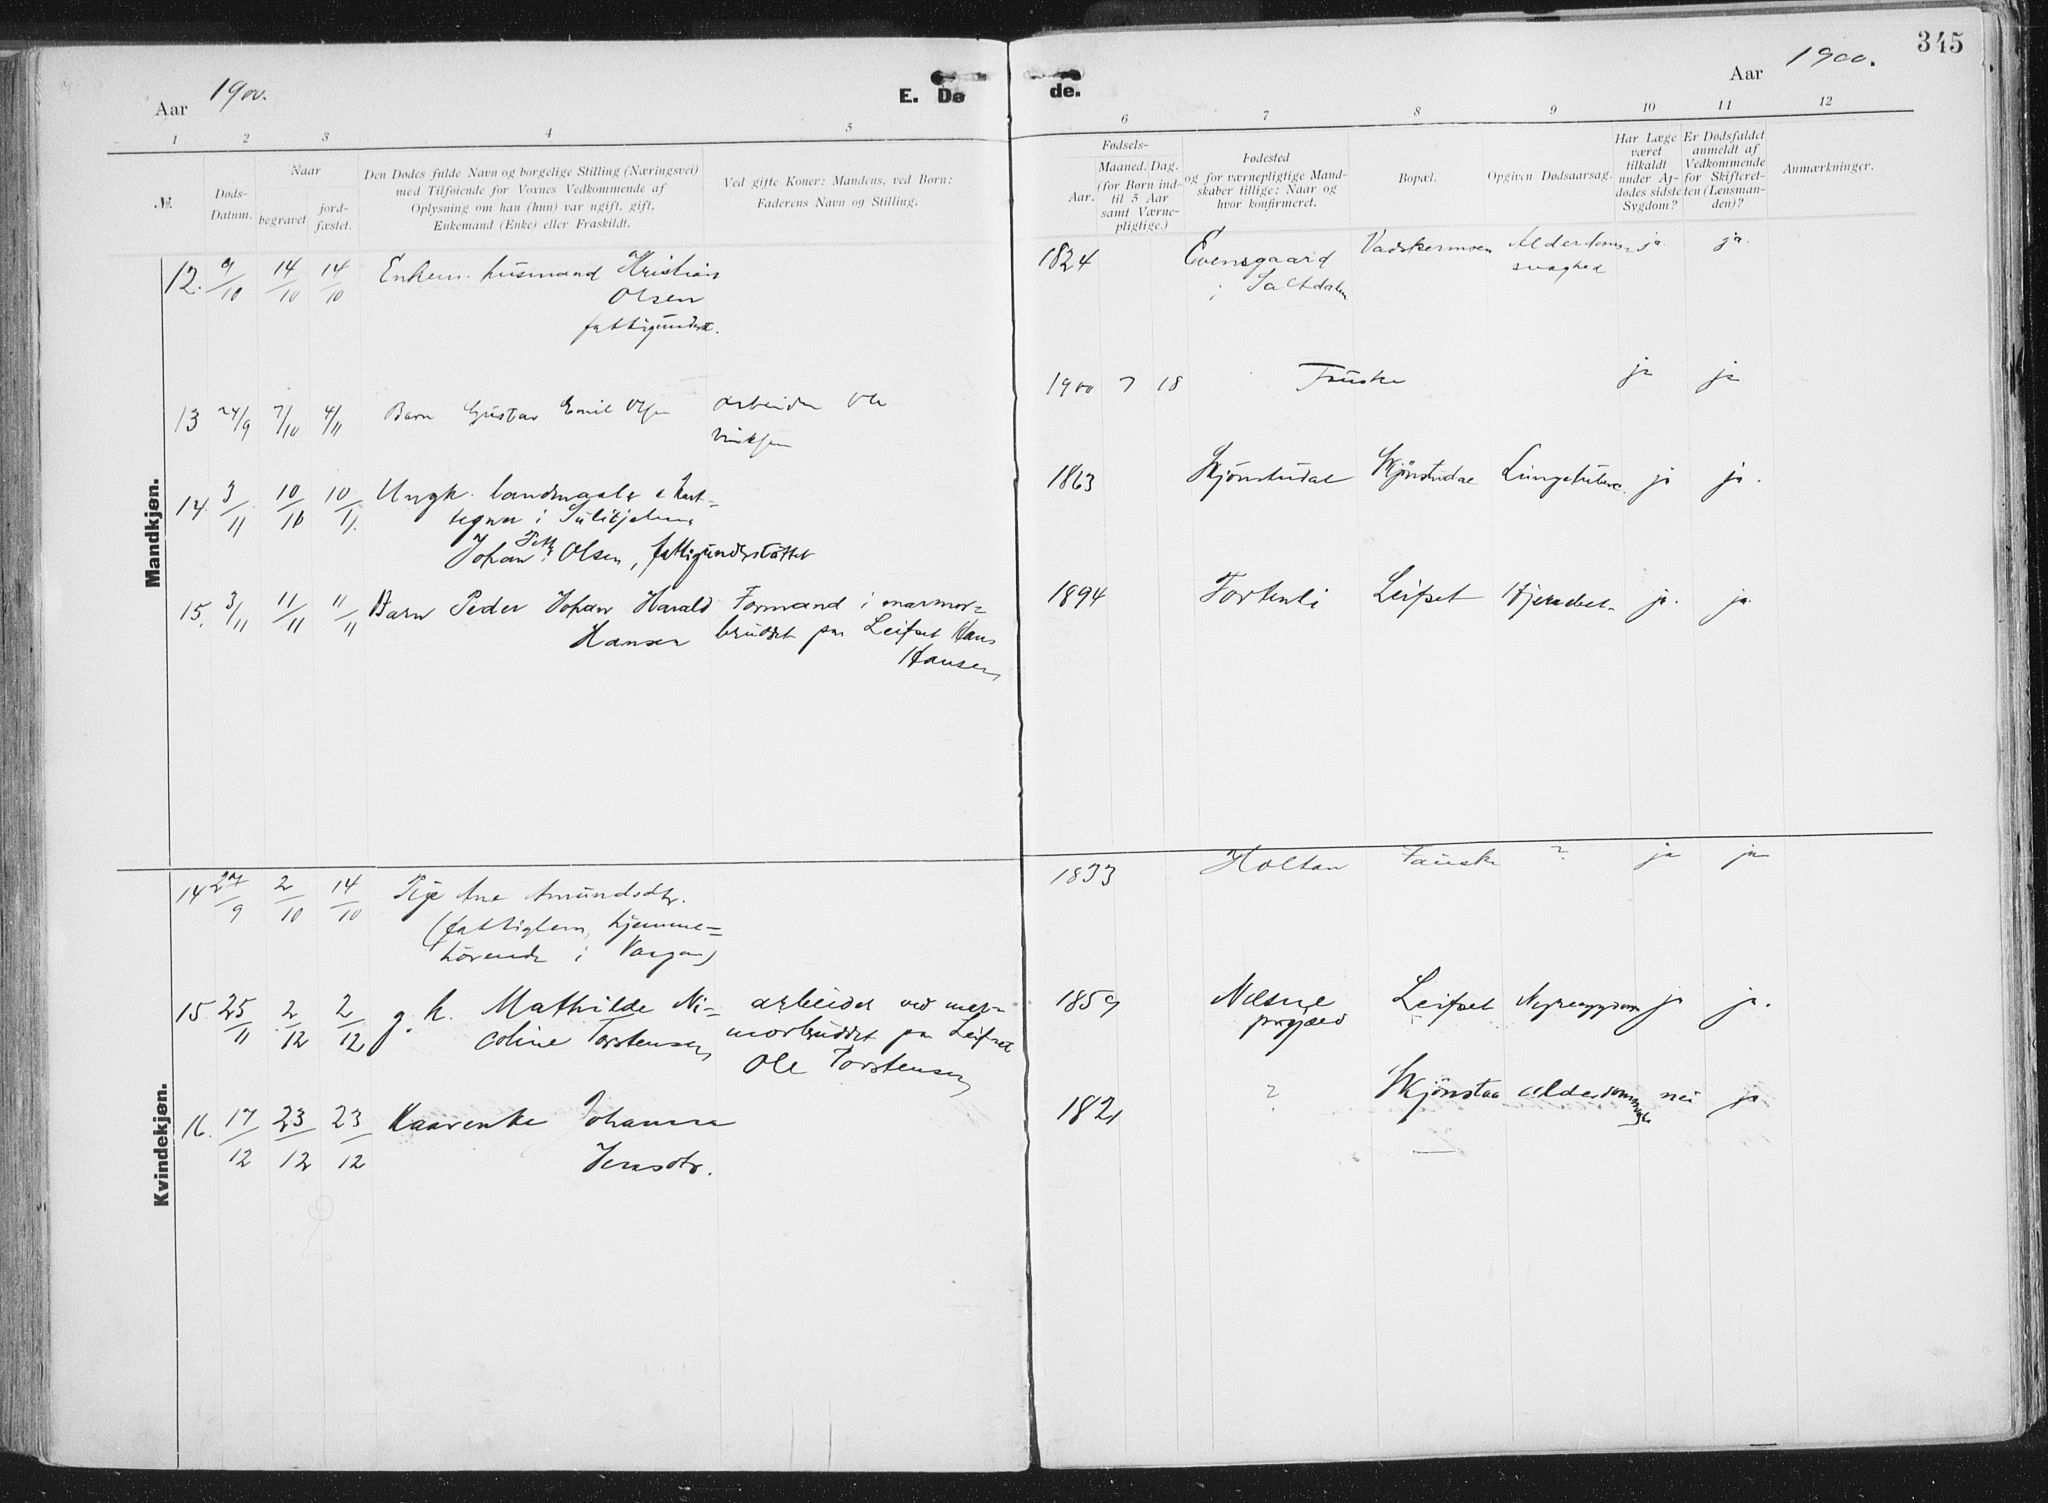 Aar 1900.
E. Dø de.
Aar 1900.
345
1 2 3 4 5 6 7 8 9 10 11 12
№.
Døds-
Datum.
Naar
begravet
jord-
fæstet.
Den Dødes fulde Navn og borgelige Stilling (Næringsvei)
med Tilføiende for Voxnes Vedkommende af
Oplysning om han (hun) var ugift, gift,
Enkemand (Enke) eller Fraskildt.
Ved gifte Koner: Mandens, ved Børn:
Faderens Navn og Stilling.
Fødsels-
Aar.
Maaned. Dag.
(for Børn ind-
til 5 Aar
samt Værne-
pligtige.)
Fødested
og for værnepligtige Mand-
skaber tillige: Naar og
hvor konfirmeret.
Bopæl.
Opgiven Dødsaarsag.
Har Læge
været
tilkaldt
under Af-
dødes sidste
Sygdom?
Er Dødsfaldet
anmeldt af
Vedkommende
for Skifteret-
ten (Lensman-
den)?
Anmærkninger.
Mandkjøn.
12. 9/10 14/10 14/10 Enkem. husmand Kristian
Olsen
fattigunderst.
1824 Evensgaard
i Saltdalen
Vadskermoen Alderdoms-
svaghed
ja. ja.
13 24/9 7/10 4/11 Barn Gustav Emil Olsen arbeider Ole
1900 7 18 Fauske ja ja
14. 3/11 10/11 Ungk. landmaaler & kart-
tegner i Sulitjelma
Johan Petter Olsen, fattigunderstøttet
1863 Skjönstudal Skjönstudal Lungetuberc. ja ja.
15. 3/11 11/11 11/11 Barn Peder Johan Harald Formand i marmor-
Hansen bruddet paa Leifset Hans
Hansen
1894 Tortenli Leifset ja. ja.
Kvindekjøn.
14 27/9 2/10 14/10 Pige Ane Amundsdtr.
(fattiglem, hjemme-
hørende i Vaagan)
1833 Holtan Fauske ? ja ja
15 25/11 2/12 2/12 g. k. Mathilde Ni- arbeider ved mar-
coline Torstensen morbruddet paa Leifset
Ole Torstensen
1859 Nesne
prgjæld
Leifset Nyresygdom ja ja.
16. 17/12 23/12 23/12 Kaarenke Johanna
Jensdtr.
1821 ? Skjönstaa alderdomssvagh. nei ja